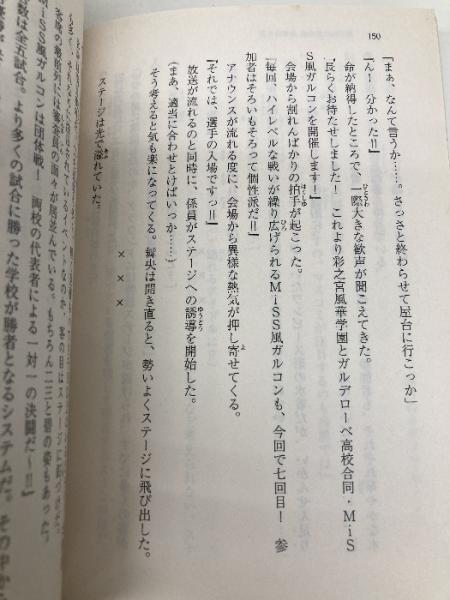 150
「まぁ、なんて言うか……。さっさと終わらせて屋台に行こっか」
「ん！　分かった!!」
命が納得したところで、一際大きな歓声が聞こえてきた。
「長らくお待たせしました！　これより彩之宮風華学園とガルデローベ高校合同・MiS
S風ガルコンを開催します！」
会場から割れんばかりの拍手が起こった。
「毎回、ハイレベルな戦いが繰り広げられるMiSS風ガルコンも、今回で七回目！　参
加者はそろいもそろって個性派だ!!」
アナウンスが流れる度に、会場から異様な熱気が押し寄せてくる。
「それでは、選手の入場ですっ!!」
放送が流れるのと同時に、係員がステージへの誘導を開始した。
（まあ、適当に合わせとけばいっか……）
そう考えると気も楽になってくる。舞央は開き直ると、勢いよくステージに飛び出した。
×　×　×
ステージは光で溢れていた。
イベントなのか、客の目はステージに
審査員の面々が居並んでいる。もちろん二三と碧の姿もあった。
MiSS風ガルコンは団体戦！　両校の代表者による一対一の決闘だ～!!
数は全五試合。より多くの試合に勝った学校が勝者となるシステムだ。